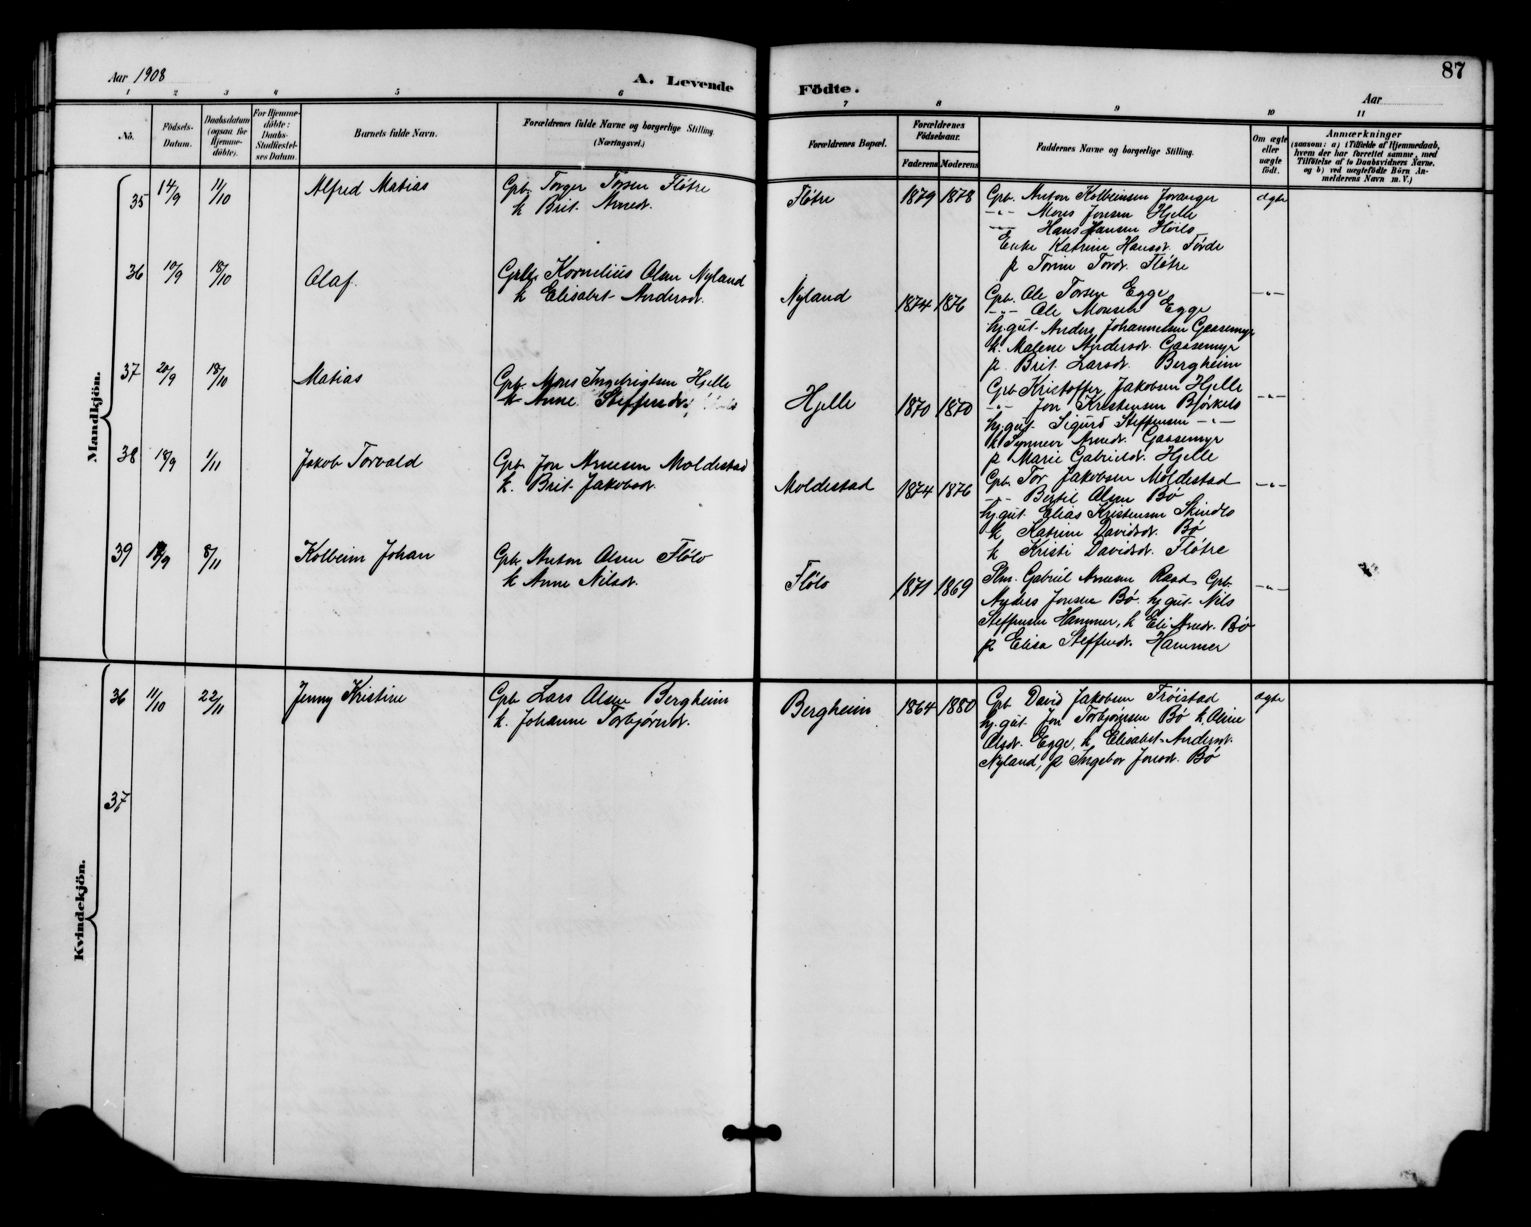 Aar 1908
A. Levende Födte.
87
Aar
1 2 3 4 5 6 7 8 9 10 11
No.
Födsels-Datum.
Daabsdatum (ogsaa for Hjemme-döbte).
For Hjemme-döbte: Daabs-Stadfæstel-ses Datum.
Barnets fulde Navn.
Forældrenes fulde Navne og borgerlige Stilling. (Næringsvei.)
Forældrenes Bopæl.
Forældrenes Födselsaar.
Faderens Moderens
Faddernes Navne og borgerlige Stilling.
Om ægte eller uægte födt.
Anmærkninger
(saasom: a) i Tilfælde af Hjemmedaab,
hvem der har forrettet samme, med
Tilföielse af to Daabsvidners Navne,
og b) ved uægtefödte Börn An-
melderens Navn m. V.)
Mandkjön.
35 14/9 11/10 Alfred Matias
Gbr. Torger Torsen Fløtre
k. Brit Arnedr.
Fløtre 1879 1878
Gbr. Anton Kolbeinsen Jovanger
-"- Mons Jonsen Hjelle
-"- Hans Jansen
Enke Katrine Hansdr. Førde
p. Torine Tordr. Fløtre
ægte
36 10/9 18/10 Olaf
Gbr. Kornelius Olsen Nyland
k. Elisabet Andersdr.
Nyland 1874 1876
Gbr. Ole Torsen Egge
-"- Ole Monsen Egge
hj.gut. Anders Johannesen Gaasemyr
k. Malene Andersdr. Gaasemyr
p. Brit Larsdr. Bergheim
-"-
37 20/9 18/10 Matias
Gbr. Mons Ingebrigtsen Hjelle
k. Anne Steffensdr.
Hjelle 1870 1870
Gbr. Kristoffer Jakobsen Hjelle
-"- Jon Kristensen Bjørkelo
hj.gut. Sigurd Steffensen -"-
k. Synneve Arnedr. Gaasemyr
p. Marie Gabrielsdr. Hjelle
-"-
38 18/9 1/11 Jakob Torvald
Gbr. Jon Arnesen Moldestad
k. Brit Jakobsdr.
Moldestad 1874 1876
Gbr. Tor Jakobsen Moldestad
-"- Bertil Olsen Bø
hj.gut. Elias Kristensen Skindlo
k. Katrine Davidsdr. Bø
k. Kristi Davidsdr. Fløtre
-"-
39 8/11 Kolbein Johan
Gbr. Anton Olsen Flølo
k. Anne Nilsdr.
Flølo 1871 1869
Gabriel Arnesen Raad, Gbr.
Anders Jonsen Bø. hj.gut. Nils
Steffensen Hammer, k. Eli Arnedr. Bø
p. Elisa Steffendr. Hammer
-"-
Kvindekjön.
36 11/10 22/11 Jenny Kristine
Gbr. Lars Olsen Bergheim
k. Johanne Torbjørnsdr.
Bergheim 1864 1880
Gbr. David Jakobsen Trøistad
hj.gut. Jon Torbjørnsen Bø k. Oline
Olsdr. Egge, k. Elisabet Andersdr.
Nyland, p. Ingebor Jonsdr. Bø
ægte
37